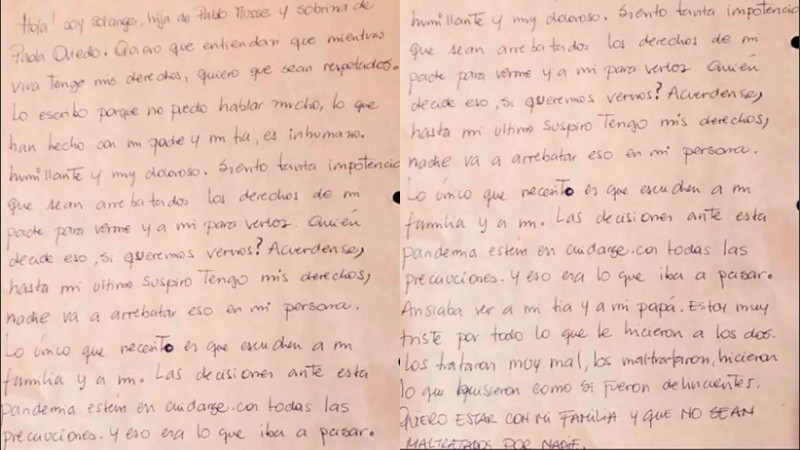 Hoja! soy Solange, hija de Pablo Musse y sobrina de
Paola Oviedo. Quiero que entiendan que mientras
viva Tengo mis derechos, quiero que sean respetados.
Lo escribo porque no puedo hablar mucho, lo que
han hecho con mi padre y mi tia, es inhumano.
humillante y muy doloroso. Siento tanta impotencia
que sean arrebatados los derechos de mi
padre para verme y a mi para verlos. Quién
decide eso, si queremos vernos? Acuerdense,
hasta mi ultimo suspiro Tengo mis derechos,
nadie va a arrebatar eso en mi persona.
Lo único que necesito es que escuchen a mi
familia y a mi. Las decisiones ante esta
pandemia estén en cuidarse con todas las
precauciones. Y eso era lo que iba a pasar.
humillante y muy doloroso. Siento tanta impotencia
que sean arrebatados los derechos de mi
padre para verme y a mi para verlos. Quién
decide eso, si queremos vernos? Acuerdense,
hasta mi ultimo suspiro Tengo mis derechos,
nadie va a arrebatar eso en mi persona.
Lo único que necesito es que escuchen a mi
familia y a mi. Las decisiones ante esta
pandemia estén en cuidarse con todas las
precauciones. Y eso era lo que iba a pasar.
Ansiaba ver a mi tia y a mi papá. Estoy muy
triste por todo lo que le hicieron a los dos.
Los trataron muy mal, los maltrataron, hicieron
lo que quisieron como si fueron delincuentes.
QUIERO ESTAR CON MI FAMILIA Y QUE NO SEAN
MALTRATADOS POR NADIE.